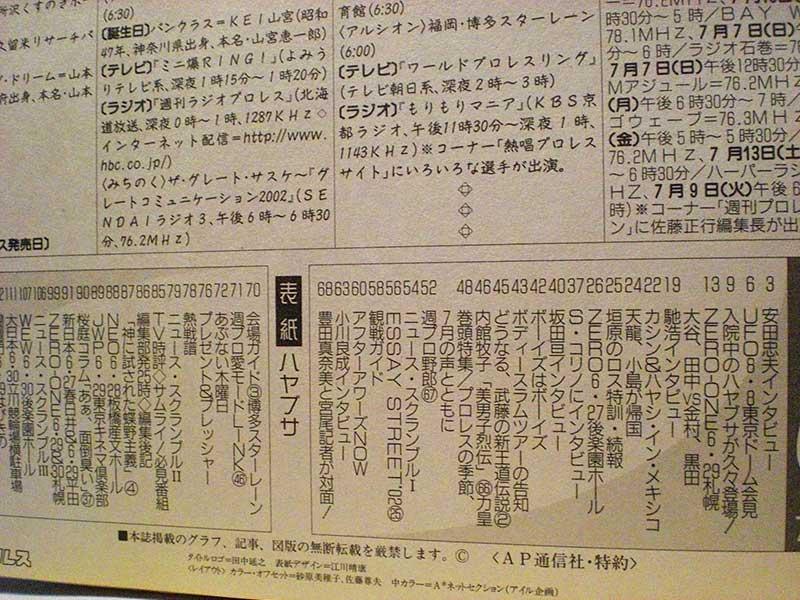 所沢くすのきホー
久留米リサーチパ
ブ・ドリーム＝山本
府出身、本名・山本
ス発売日)
(6:30)
〔誕生日〕パンクラス＝KEI山宮(昭和
47年、神奈川県出身、本名・山宮恵一郎)
〔テレビ〕「ミニ爆RING！」(よみう
りテレビ系、深夜1時15分～1時20分)
〔ラジオ〕「週刊ラジオプロレス」(北海
道放送、深夜0時～1時、1287KHz◇
インターネット配信＝http://www.
hbc.co.jp/)
〈みちのく〉ザ・グレート・サスケ～「グ
レートコミュニケーション2002」(SE
NDAIラジオ3、午後6時～6時30
分、76.2MHz)
育館(6:30)
〈アルシオン〉福岡・博多スターレーン
(6:00)
〔テレビ〕「ワールドプロレスリング」
(テレビ朝日系、深夜2時～3時)
〔ラジオ〕「もりもりマニア」(KBS京
都ラジオ、午後11時30分～深夜1時、
1143KHz)※コーナー「熱唱プロレス
サイト」にいろいろな選手が出演。
時30分～5時/BAY W
78.1MHz、7月7日(日)
～6時/ラジオ石巻＝7
7月7日(日)午後12時30分
Mアジュール＝76.2MHz
(月)午後6時30分～7時/
ゴウェーブ＝76.3MHz
(金)午後5時～5時30分/
76.2MHz、7月13日(土
～6時30分/ハーバーラジ
HZ、7月9日(火)午後6
時)※コーナー「週刊プロレ
ン」に佐藤正行編集長が出
3 安田忠夫インタビュー
6 UFO8・8東京ドーム会見
9 入院中のハヤブサが久々登場！
13 ZERO-ONE6・29札幌
大谷、田中vs金村、黒田
19 馳浩インタビュー
22 カシン&ハヤシ・イン・メキシコ
24 天龍、小島が帰国
25 垣原のロス特訓・続報
26 ZERO6・27後楽園ホール
37 S・コリノにインタビュー
40 坂田亘インタビュー
42 ボーイズはボーイズ
43 ボディースラムツアーの告知
45 どうなる、武藤の新王道伝説②
46 内館牧子「美男子烈伝」66力皇
48 7月の声とともに
巻頭特集/プロレスの季節、
52 週プロ野郎67
54 ニュース・スクランブルI
56 ESSAY STREET'02 26
58 観戦ガイド
60 アフターアワーズNOW
63 小川良成インタビュー
68 豊田真奈美と宮尾記者が対面！
表紙 ハヤブサ
70 会場ガイド③博多スターレーン
71 週プロ愛モードLINK46
72 あぶない木曜日
76 プレゼント&フレッシャー
77 熱戦譜
78 ニュース・スクランブルII
79 TV時評◇サムライ！必見番組
85 編集部発90時◇編集後記
86 「神に試された蝶野主義」④
87 NEO6・28板橋産文ホール
88 JWP6・29東京キネマ倶楽部
89 桜庭コラム「あぁ、面倒臭い」37
90 新日本6・27春日井&6・29立田
91 ZERO-ONE6・29&30札幌
99 ニュース・スクランブルIII
106 WEW6・30後楽園ホール
107 大日本6・30立川競輪場横駐車場
■本誌掲載のグラフ、記事、図版の無断転載を厳禁します。© 〈AP通信社・特約〉
タイトルロゴ＝田中延之 表紙デザイン＝江川晴康
〈レイアウト〉カラー・オフセット＝砂原美穂子、佐藤尊夫 中カラー＝A*ネットセクション(アイル企画)